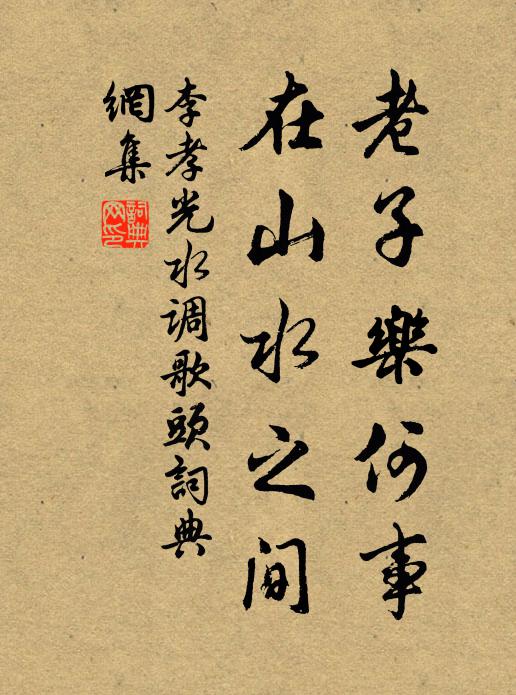 老子樂何事
在山水之间
李孝光水调歌頭詞典
網集
詞典網印